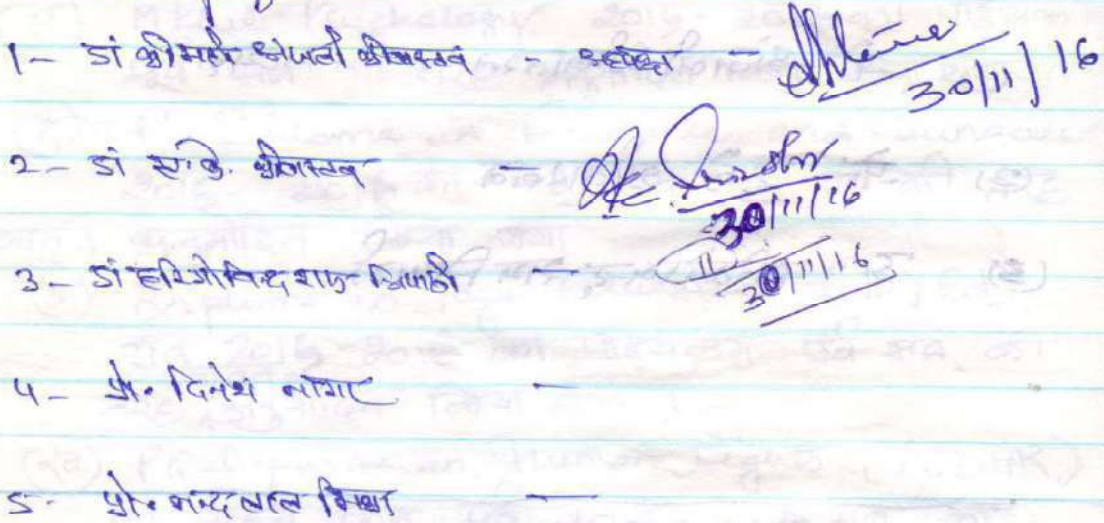 1- डॉ श्रीमती अंजली श्रीवास्तव - अध्यक्ष - 30/11/16
2- डॉ एस.के. श्रीवास्तव - 30/11/16
3- डॉ हरिगोविन्द राम त्रिपाठी - 30/11/16
4- प्रो. दिनेश नागर -
5- प्रो. नन्दलाल मिश्रा -